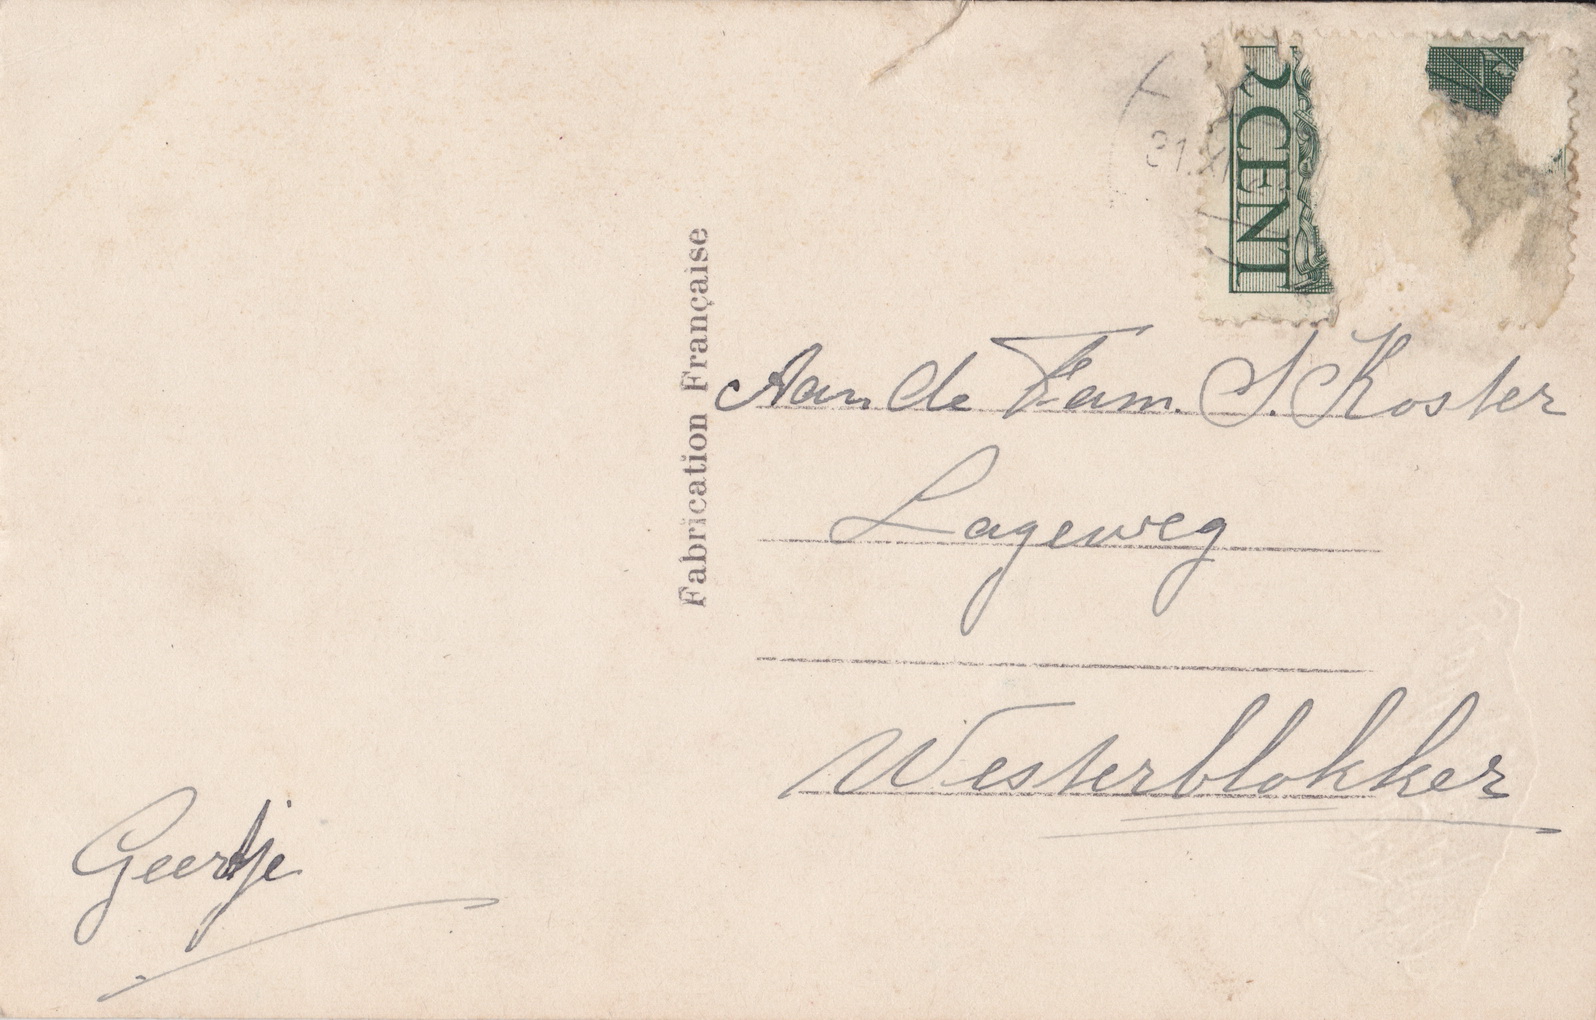 CENT
31.XI
Fabrication Française
Aan de Fam. S. Koster
Lageweg
Westerblokker
Geertje